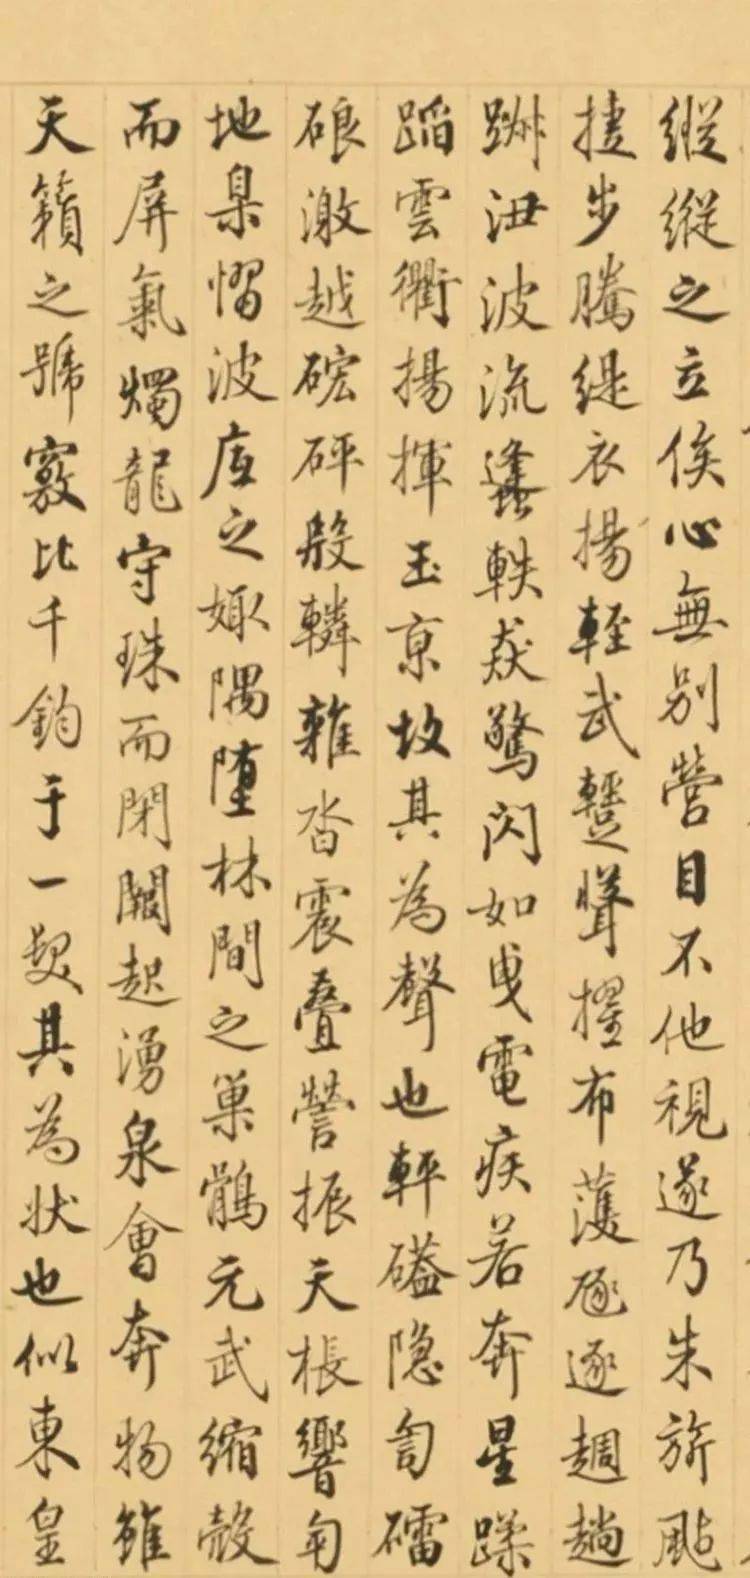 縱縱之立俟心無別營目不他視遂乃朱旂颭
捷步騰緹衣揚輕武聳擢布濩逐趨趟
跰波流軼猋驚閃如曳電疾若奔星蹂
蹈雲衢揚揮玉京故其為聲也軯磕隐訇礌
硠激越硡砰殷轔雜沓震疊謍振天棖響匉
地臯慴波底之娵隅墮林間之巢鶻元武縮殼
而屏氣燭龍守珠而閉闥起湧泉會奔物雖
天籟之號竅比千鈞于一髮其為狀也似東皇